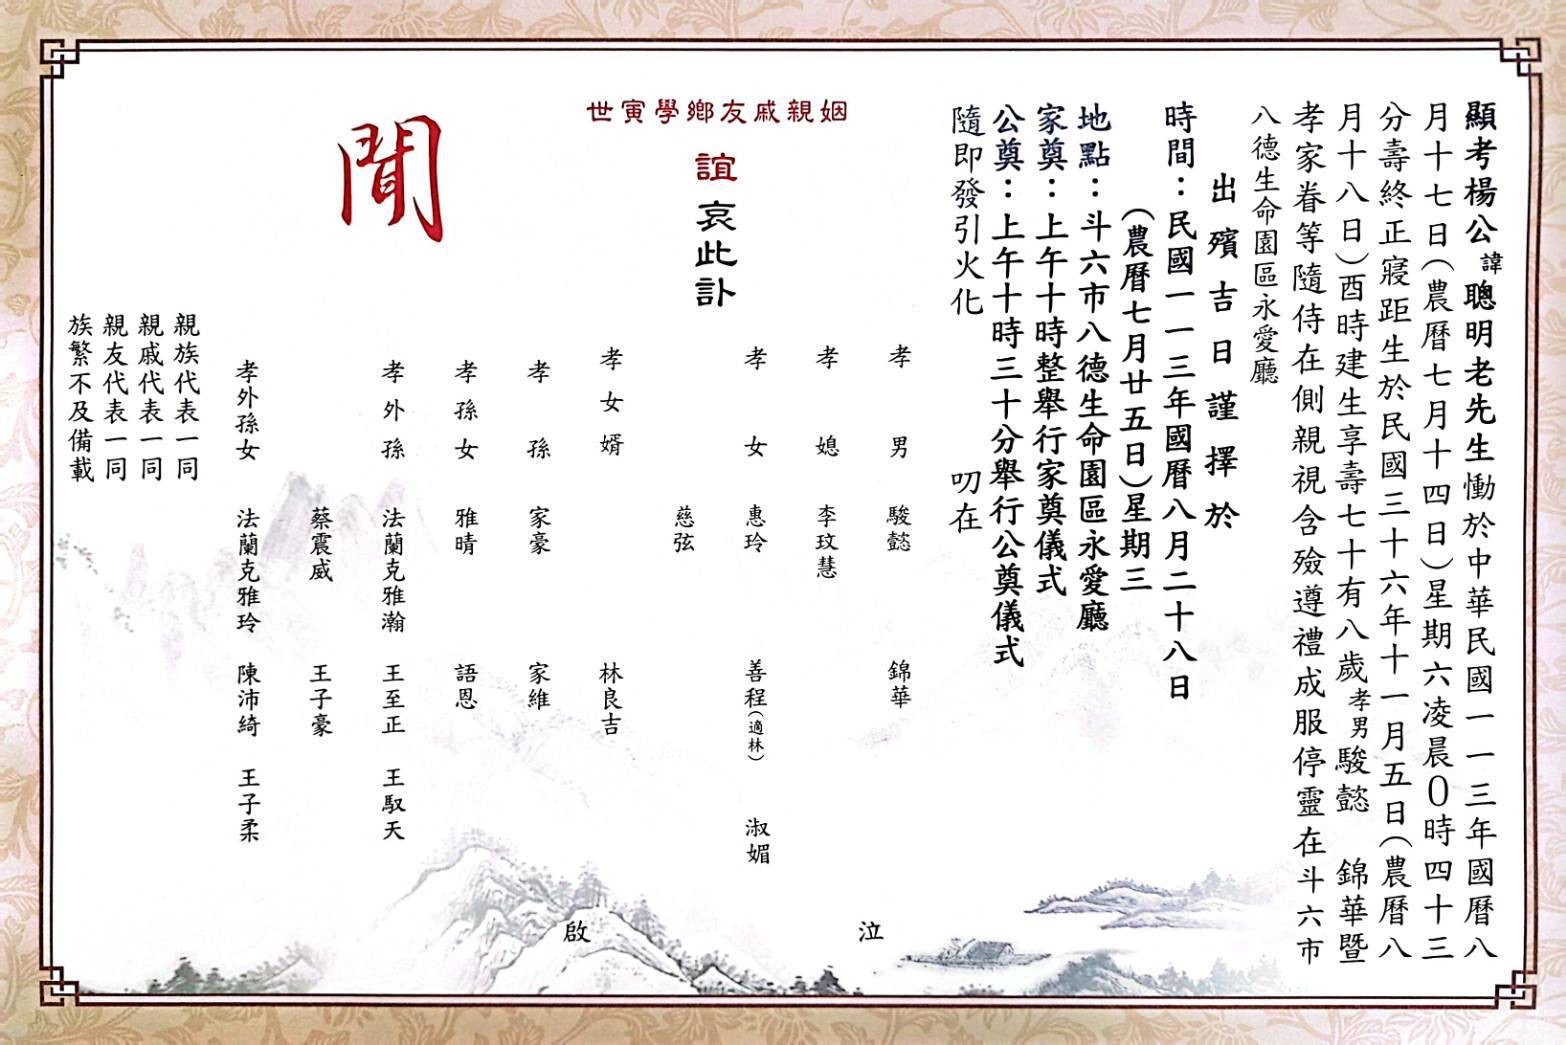 顯考楊公諱聰明老先生慟於中華民國一一三年國曆八
月十七日(農曆七月十四日)星期六凌晨0時四十三
分壽終正寢距生於民國三十六年十一月五日(農曆八
月十八日)酉時建生享壽七十有八歲孝男駿懿 錦華暨
孝家眷等隨侍在側親視含殮遵禮成服停靈在斗六市
八德生命園區永愛廳
出殯吉日謹擇於
時間：民國一一三年國曆八月二十八日
(農曆七月廿五日)星期三
地點：斗六市八德生命園區永愛廳
家奠：上午十時整舉行家奠儀式
公奠：上午十時三十分舉行公奠儀式
隨即發引火化 叨在
姻親戚友鄉學寅世
誼 哀此訃
聞
孝男 駿懿 錦華
泣
孝媳 李玟慧
孝女 惠玲 善程(適林) 淑媚
慈弦
孝女婿 林良吉
啟
孝孫 家豪 家維
孝孫女 雅晴 語恩
孝外孫 法蘭克雅瀚 王至正 王馭天
蔡震威 王子豪
孝外孫女 法蘭克雅玲 陳沛綺 王子柔
親族代表一同
親戚代表一同
親友代表一同
族繁不及備載